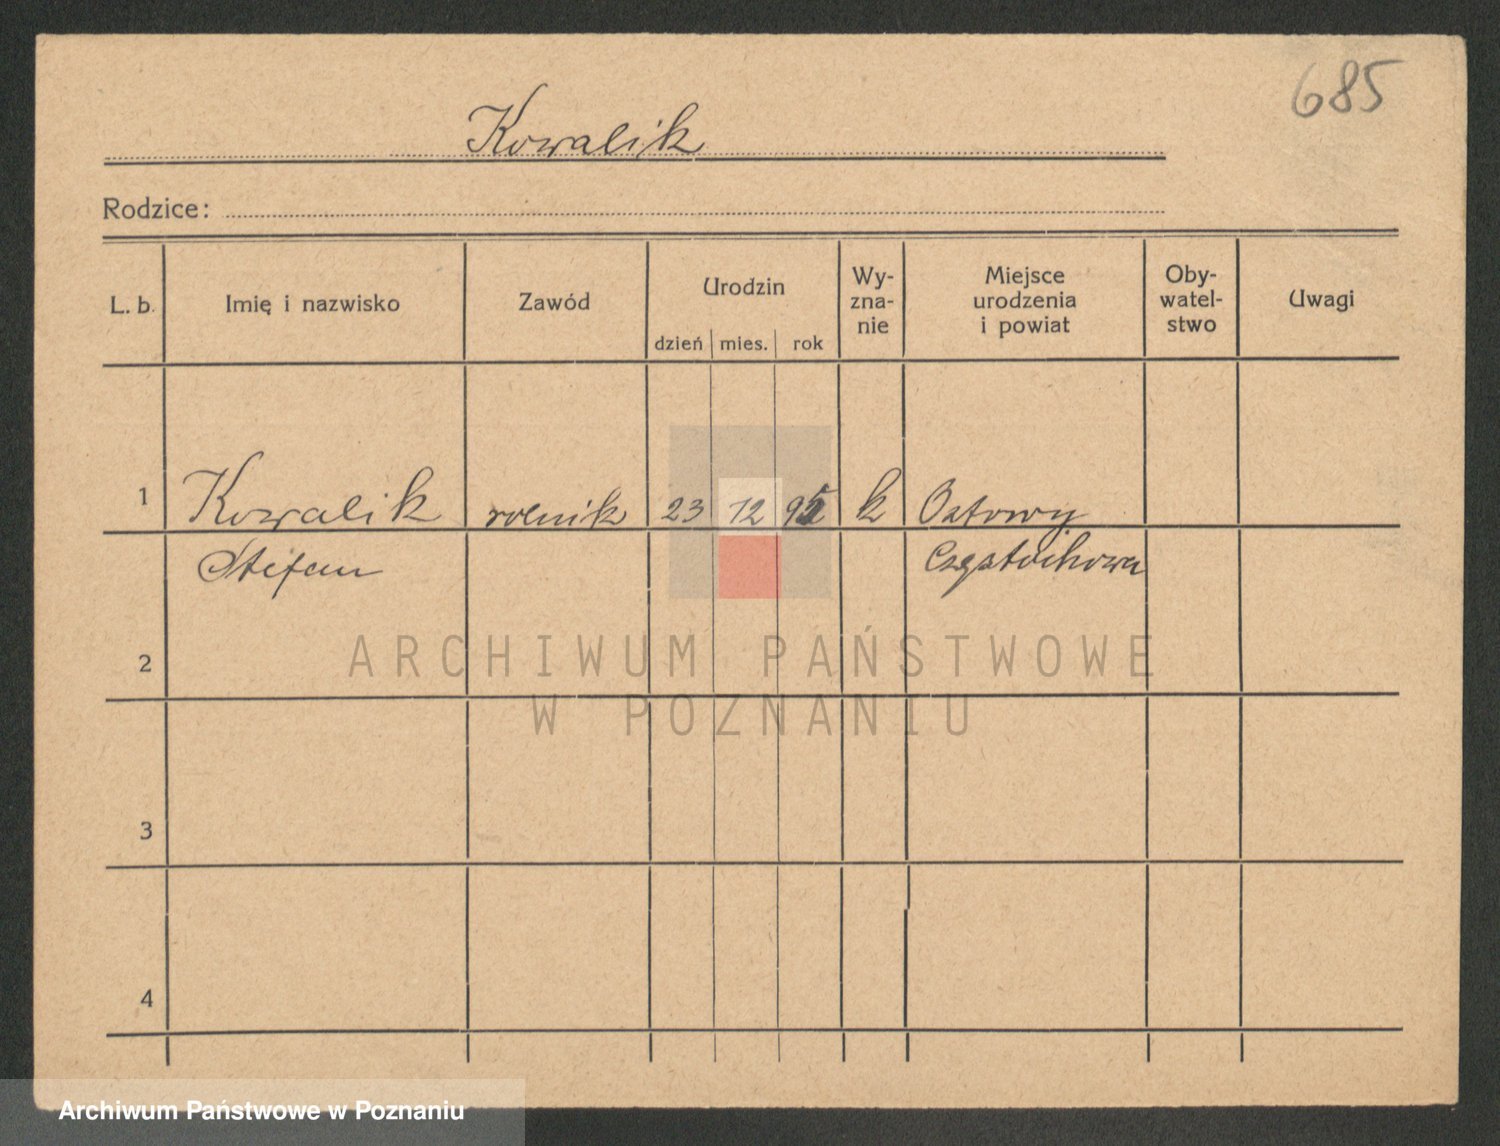 685
Kowalik
Rodzice:
L. b. Imię i nazwisko Zawód Urodzin dzień mies. rok Wy- zna- nie Miejsce urodzenia i powiat Oby- watel- stwo Uwagi
1 Kowalik rolnik 23 12 k
Stefan
2
3
4
ARCHIWUM PAŃSTWOWE
W POZNANIU
Archiwum Państwowe w Poznaniu